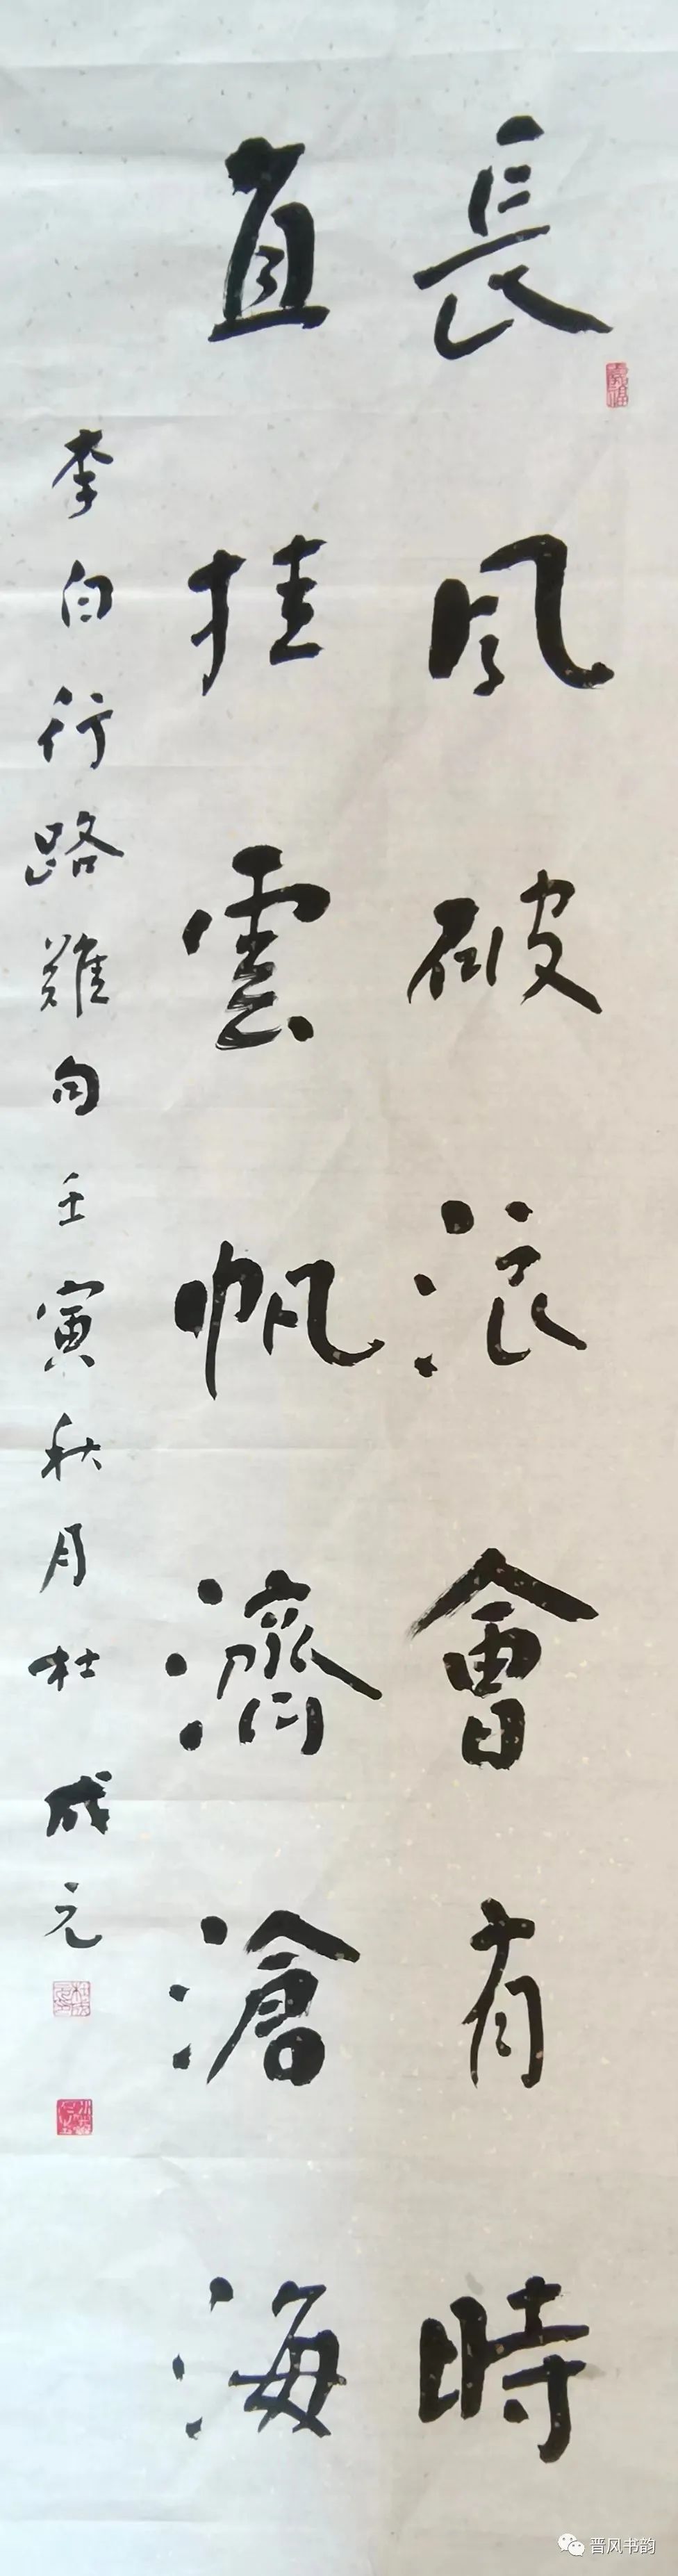 長風破浪會有時
直挂雲帆濟滄海
李白行路難句壬寅秋月杜成元
晋风书韵